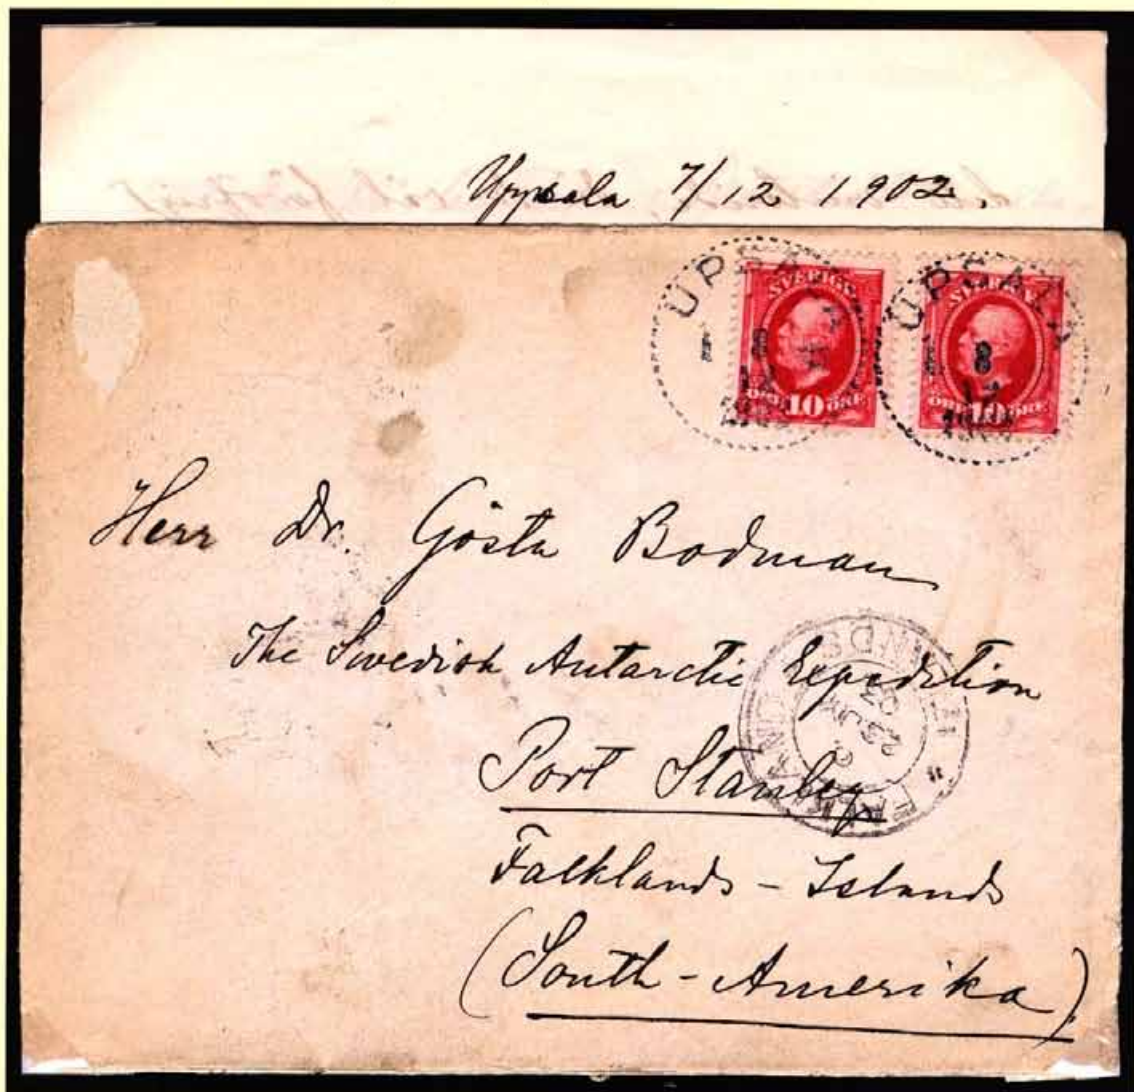 Uppsala 7/12 1902.
UPSALA
8
12
SVERIGE
ÖRE 10 ÖRE
UPSALA
8
12
SVERIGE
ÖRE 10 ÖRE
Herr Dr. Gösta Bodman
The Swedish Antarctic Expedition
Port Stanley
Falklands - Islands
(South - Amerika)
FALKLAND ISLANDS
23 JA
03